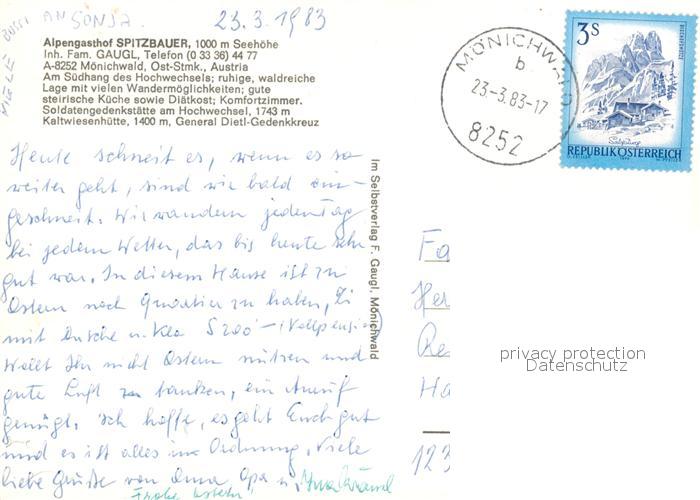 VIELE BUSSI AN SONJA.
23.3.1983
Alpengasthof SPITZBAUER, 1000 m Seehöhe
Inh. Fam. GAUGL, Telefon (0 33 36) 44 77
A-8252 Mönichwald, Ost-Stmk., Austria
Am Südhang des Hochwechsels; ruhige, waldreiche
Lage mit vielen Wandermöglichkeiten; gute
steirische Küche sowie Diätkost; Komfortzimmer.
Soldatengedenkstätte am Hochwechsel, 1743 m
Kaltwiesenhütte, 1400 m, General Dietl-Gedenkkreuz
Heute schneit es, wenn es so
weiter geht, sind wir bald ein-
geschneit. Wir wandern jeden Tag
bei jedem Wetter, das bis heute sehr
gut war. In diesem Hause ist zu
Ostern noch Quartier zu haben, Zi
mit Dusche u. Klo S 200'- (Vollpension)
Wollt Ihr nicht Ostern nützen und
gute Luft zu tanken, ein Anruf
genügt. Ich hoffe, es geht Euch gut
und es ist alles in Ordnung. Viele
liebe Grüße von Oma, Opa u.
"Frohe Ostern"
Im Selbstverlag F. Gaugl, Mönichwald
MÖNICHWALD
b
23.-3.83-17
8252
3 S
REPUBLIK ÖSTERREICH
Fa
Her
Re
Ha
123
privacy protection
Datenschutz